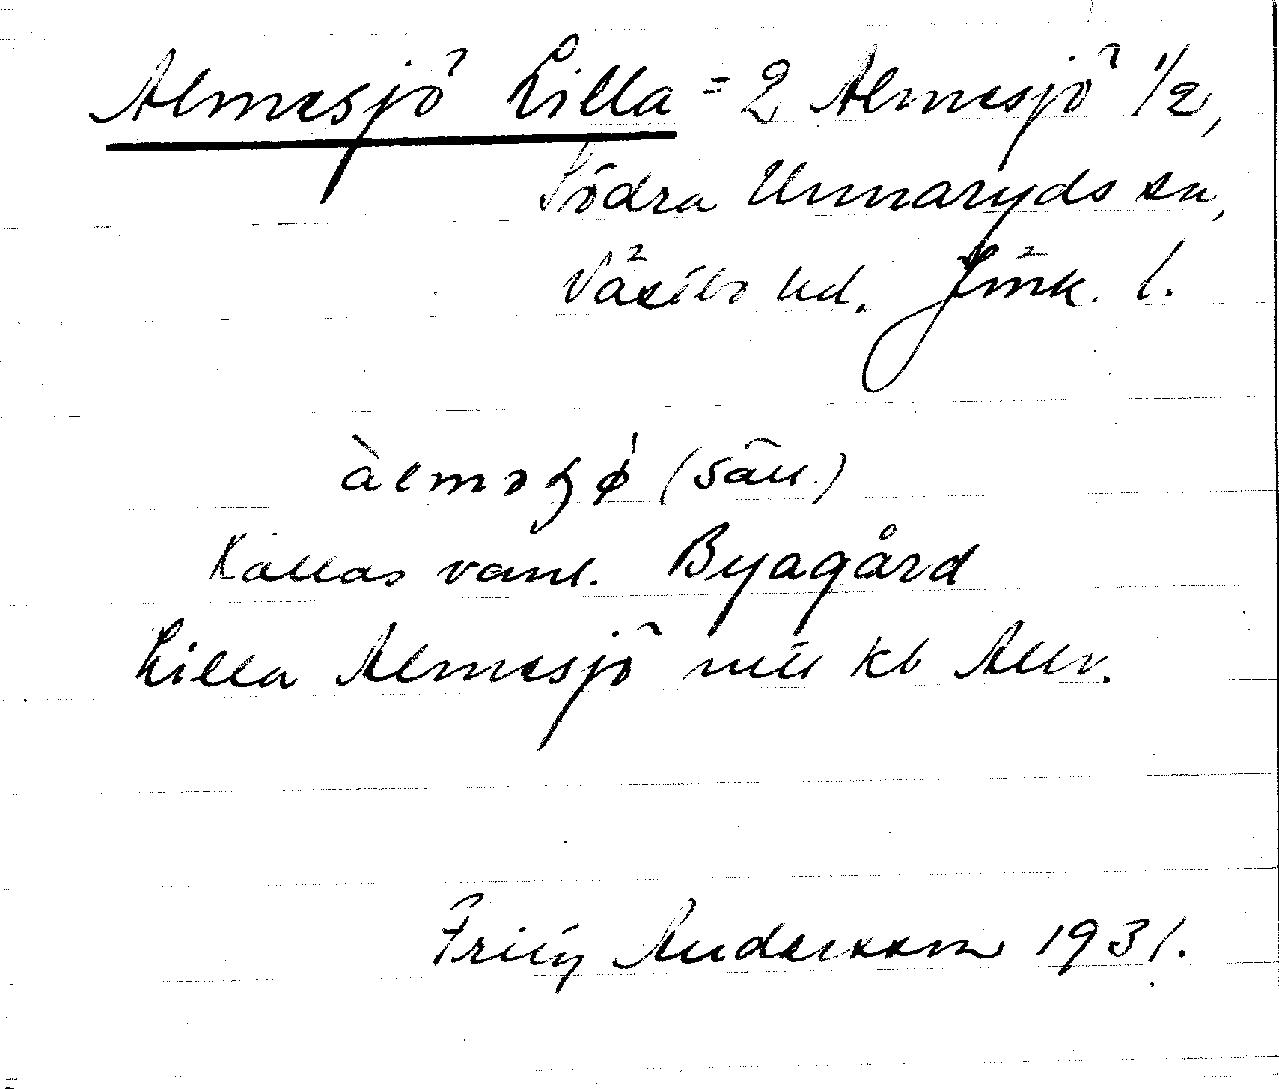 Almesjö Lilla = 2 Almesjö 1/2,
Södra Unnaryds sn,
Västbo hd. Jönk. l.
(säll.)
Kallas vanl. Byagård
Lilla Almesjö mtl kb Allm.
Fritz Andersson 1931.